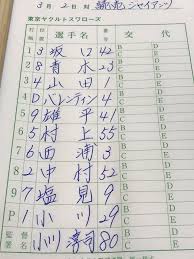 3月2日 対 読売ジャイアンツ
東京ヤクルトスワローズ
打順 守備 選手名 番号 交代
1 3 坂口 42 B C D E
2 8 青木 23 B C D E
3 4 山田 1 B C D E
4 D バレンティン 4 B C D E
5 9 雄平 41 B C D E
6 5 村上 55 B C D E
7 6 西浦 3 B C D E
8 2 中村 52 B C D E
9 7 塩見 9 B C D E
P 1 小川 29 B C D E
監督署名 小川淳司 80 B C D E